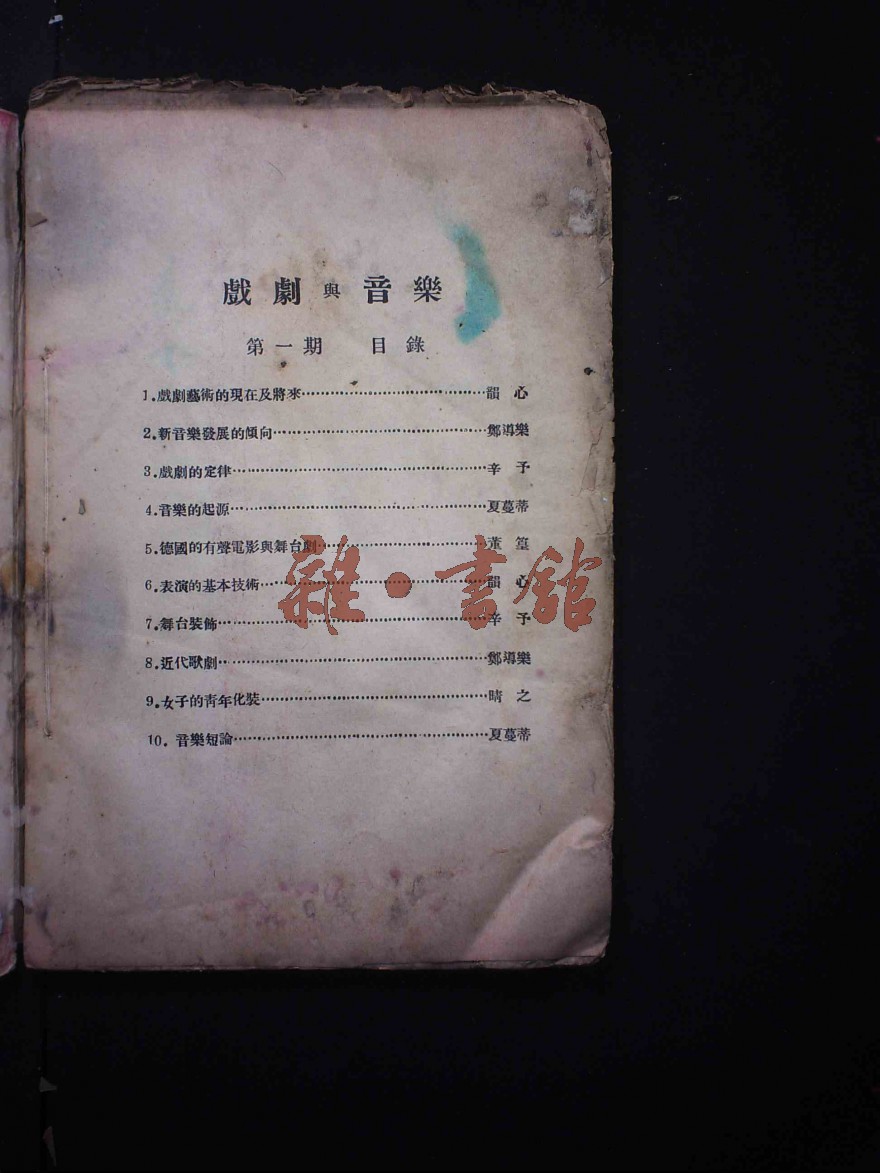 戲劇與音樂
第一期 目錄
1.戲劇藝術的現在及將來……韻心
2.新音樂發展的傾向……鄭導樂
3.戲劇的定律……辛予
4.音樂的起源……夏蔓蒂
5.德國的有聲電影與舞台劇……董篁
6.表演的基本技術……韻心
7.舞台裝飾……辛予
8.近代歌劇……鄭導樂
9.女子的靑年化裝……晴之
10.音樂短論……夏蔓蒂
雜·書館